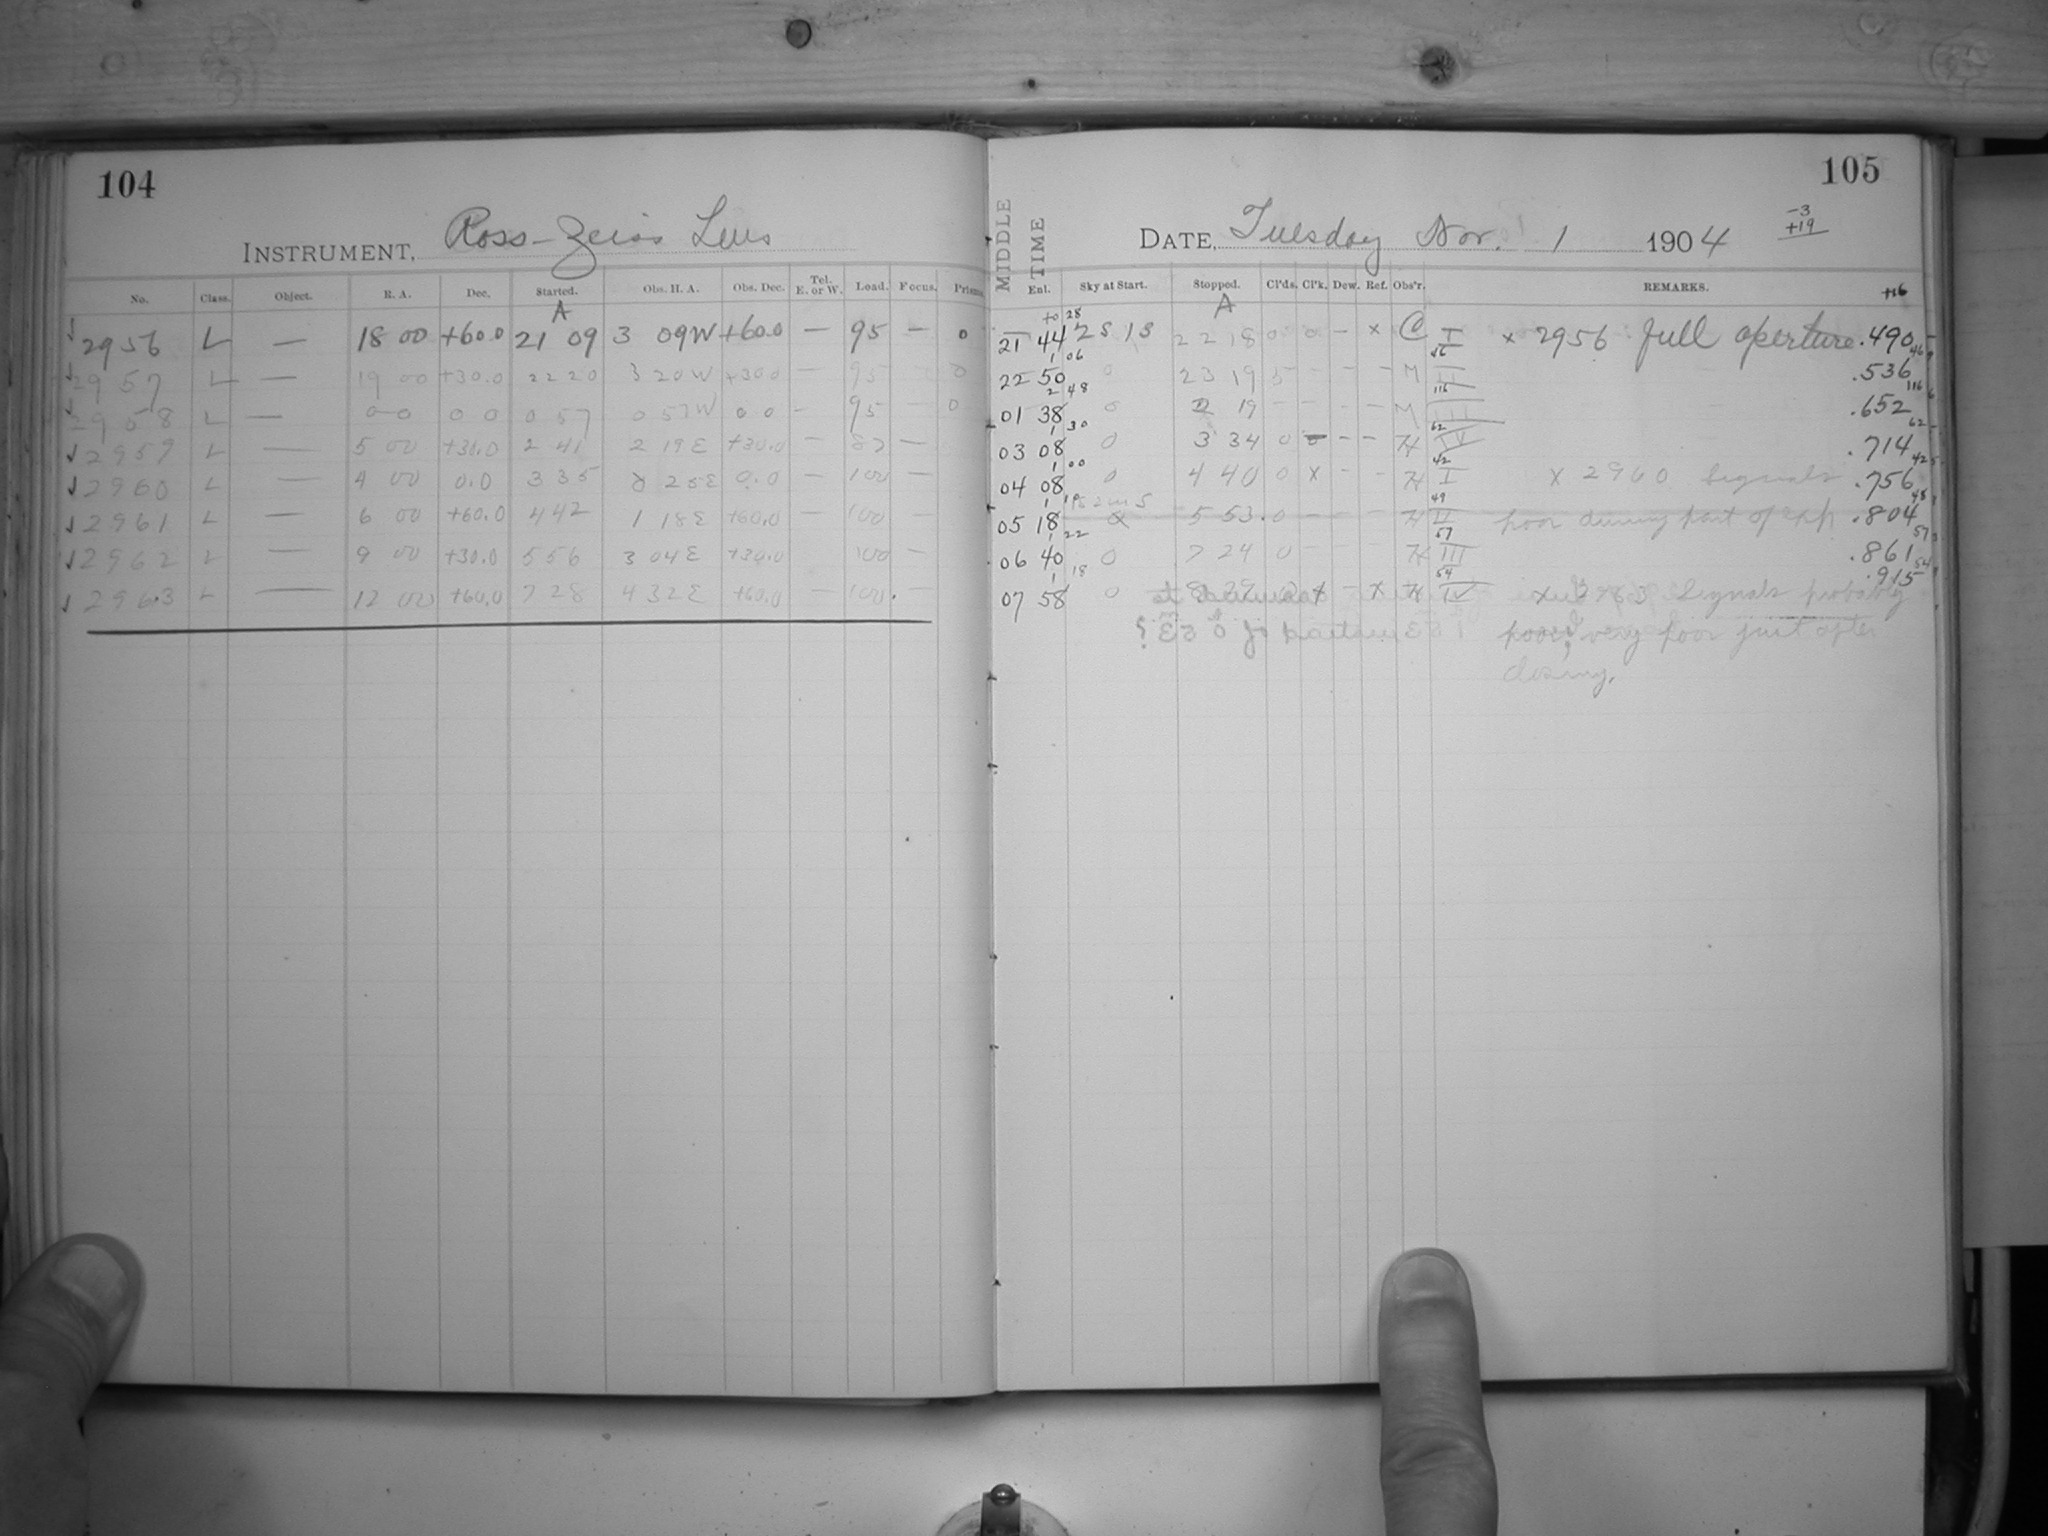 104
INSTRUMENT, Ross-Zeiss Lens
No. Class. Object. R. A. Dec. Started. Obs. H. A. Obs. Dec. Tel. E. or W. Load. Focus. Prisms.
A
2956 L — 18 00 +60.0 21 09 3 09W +60.0 — 95 — 0
2957 L — 19 00 +30.0 22 20 3 20W +30.0 — 95 0
2958 L — 0 0 0 0 0 57 0 57W 0 0 — 95 — 0
2959 L — 5 00 +30.0 2 41 2 19E +30.0 — 87 —
2960 L — 4 00 0.0 3 35 0 25E 0.0 — 100 —
2961 L — 6 00 +60.0 4 42 1 18E +60.0 — 100 —
2962 L — 9 00 +30.0 5 56 3 04E +30.0 100 —
2963 L — 12 00 +60.0 7 28 4 32E +60.0 — 100. —
105
-3
+19
DATE, Tuesday Nov. 1 1904
MIDDLE TIME
Enl. Sky at Start. Stopped. Cl'ds. Cl'k. Dew. Ref. Obs'r. REMARKS. +16
A
21 44 2 5 1 3 22 18 0 0 — x C I x 2956 full aperture .490
22 50 0 23 19 5 — — — M II .536
01 38 0 2 19 — — — M III .652
03 08 0 3 34 0 — — H IV .714
04 08 0 4 40 0 x — — H I x 2960 Signals .756
05 18 5 53 0 — — — H II poor during part of exp. .804
06 40 0 7 24 0 — — H III .861
07 58 0 8 — x H IV x 2963 Signals probably .915
poor, very poor just after
closing.